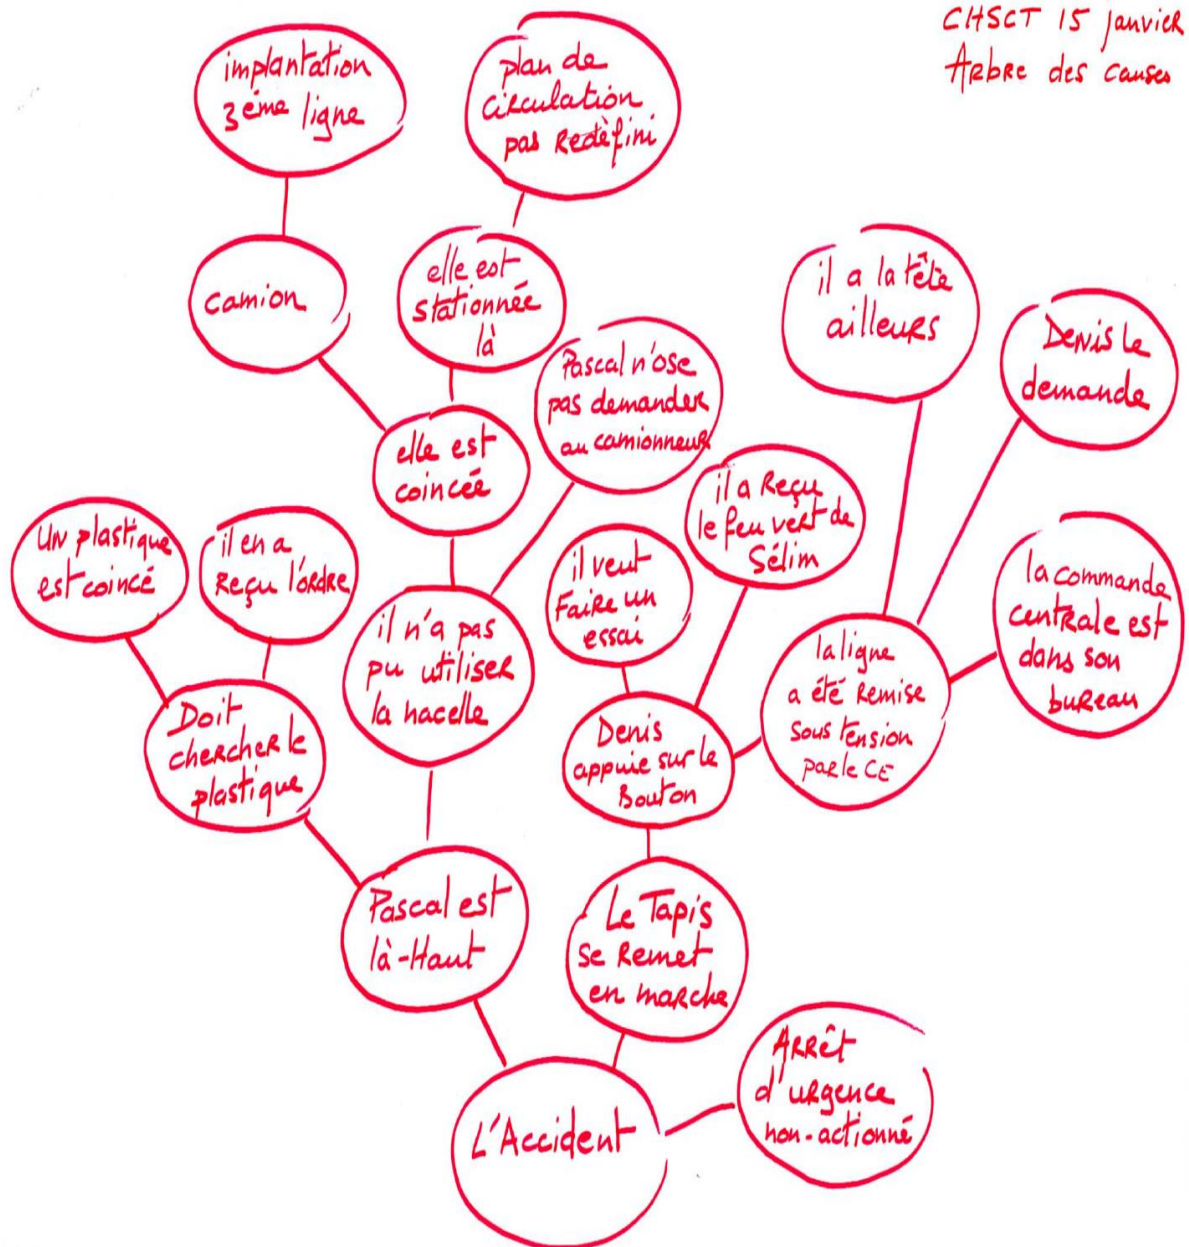 CHSCT 15 janvier
Arbre des causes
implantation
3ème ligne
plan de
circulation
pas redéfini
camion
elle est
stationnée
là
il a la tête
ailleurs
Denis le
demande
Pascal n'ose
pas demander
au camionneur
elle est
coincée
il a reçu
le feu vert de
Sélim
Un plastique
est coincé
il en a
reçu l'ordre
il veut
Faire un
essai
la commande
centrale est
dans son
bureau
il n'a pas
pu utiliser
la nacelle
la ligne
a été remise
sous tension
par le CE
Doit
chercher le
plastique
Denis
appuie sur le
Bouton
Pascal est
là-Haut
Le Tapis
se remet
en marche
Arrêt
d'urgence
non-actionné
L'Accident